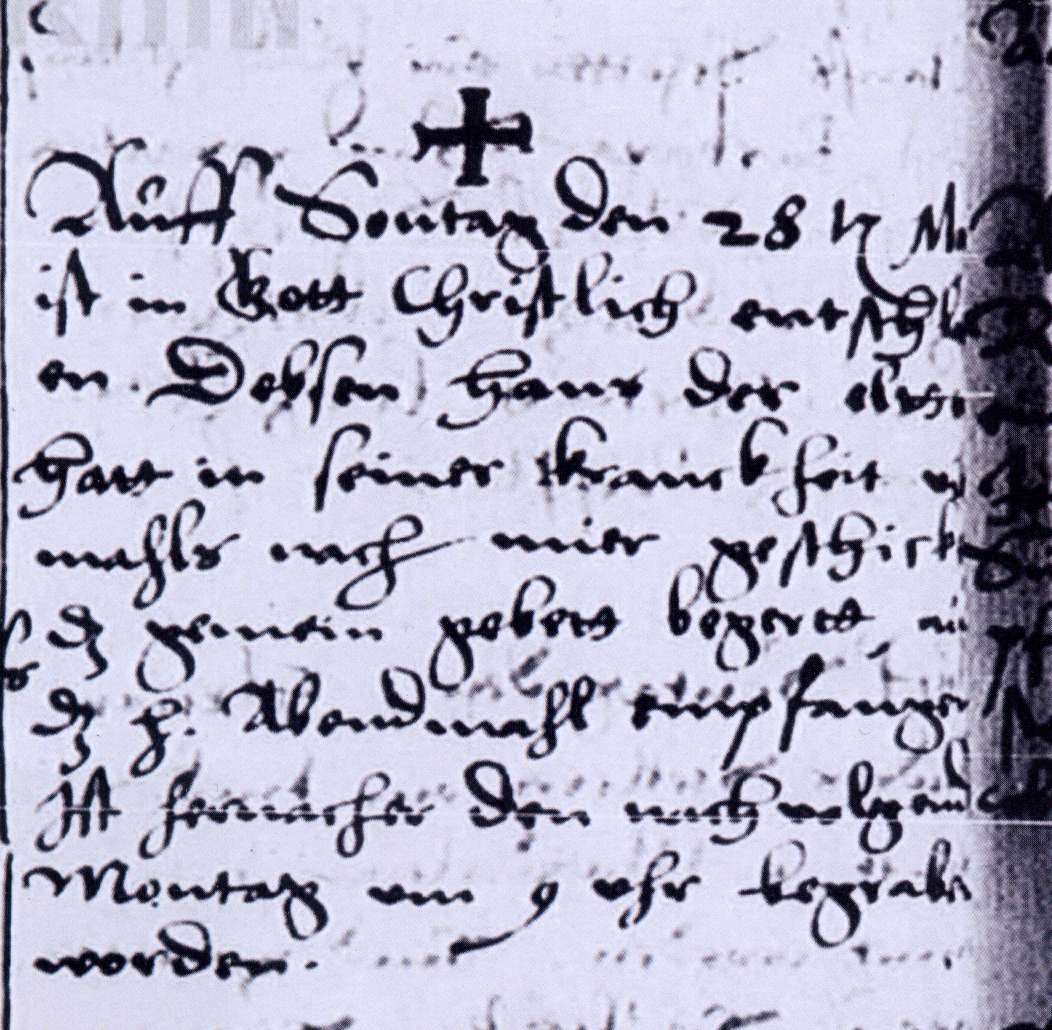 Auff Sontag den 28
ist in Gott Christlich entschl
en Debsen Hans der elter
Hatt in seiner kranckheit
mahls nach mier geschick
dz gemein gebett begertt
dz h. Abendmahl empfangen
Ist hernacher den nachvolgend
Montag vm 9 vhr begrabe
worden.